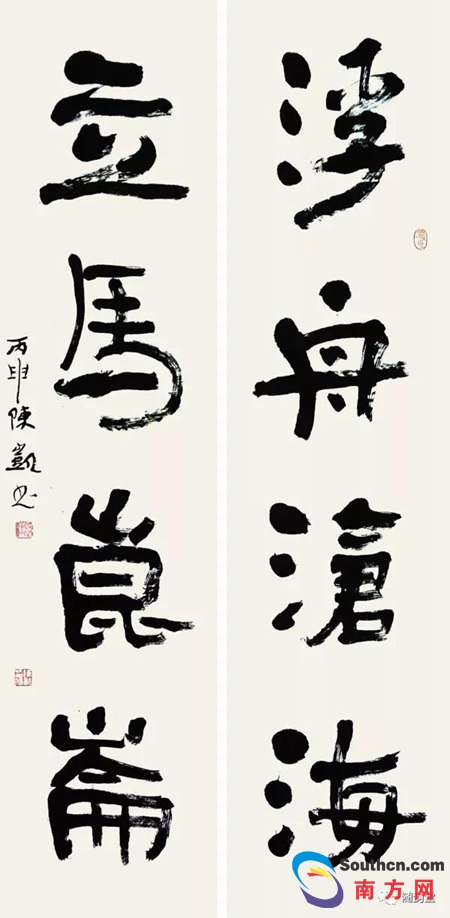 浮舟滄海
立馬崑崙
丙申陳凱书
Southcn.com
南方网